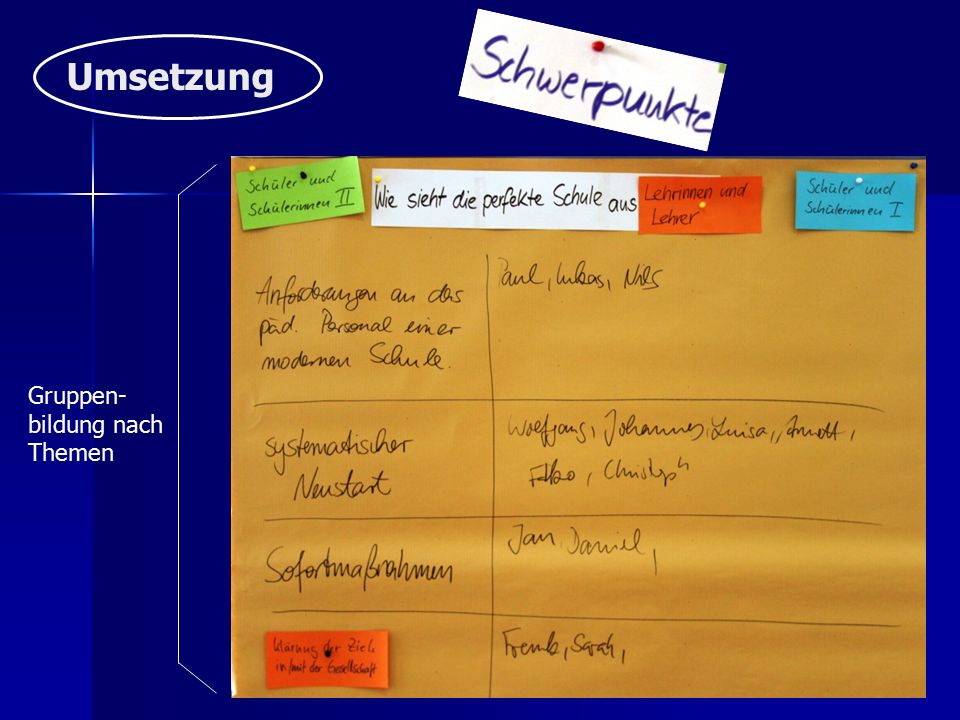 Umsetzung
Schwerpunkte
Gruppen-
bildung nach
Themen
Schüler und
Schülerinnen II
Wie sieht die perfekte Schule aus
Lehrinnen und
Lehrer
Schüler und
Schülerinnen I
Anforderungen an das
päd. Personal einer
modernen Schule.
Paul, Lukas, Nils
systematischer
Neustart
Wolfgang, Johannes, Luisa,
Christoph
Sofortmaßnahmen
Jan, Daniel,
Klärung der Ziele
in/mit der Gesellschaft
Frank, Sarah,